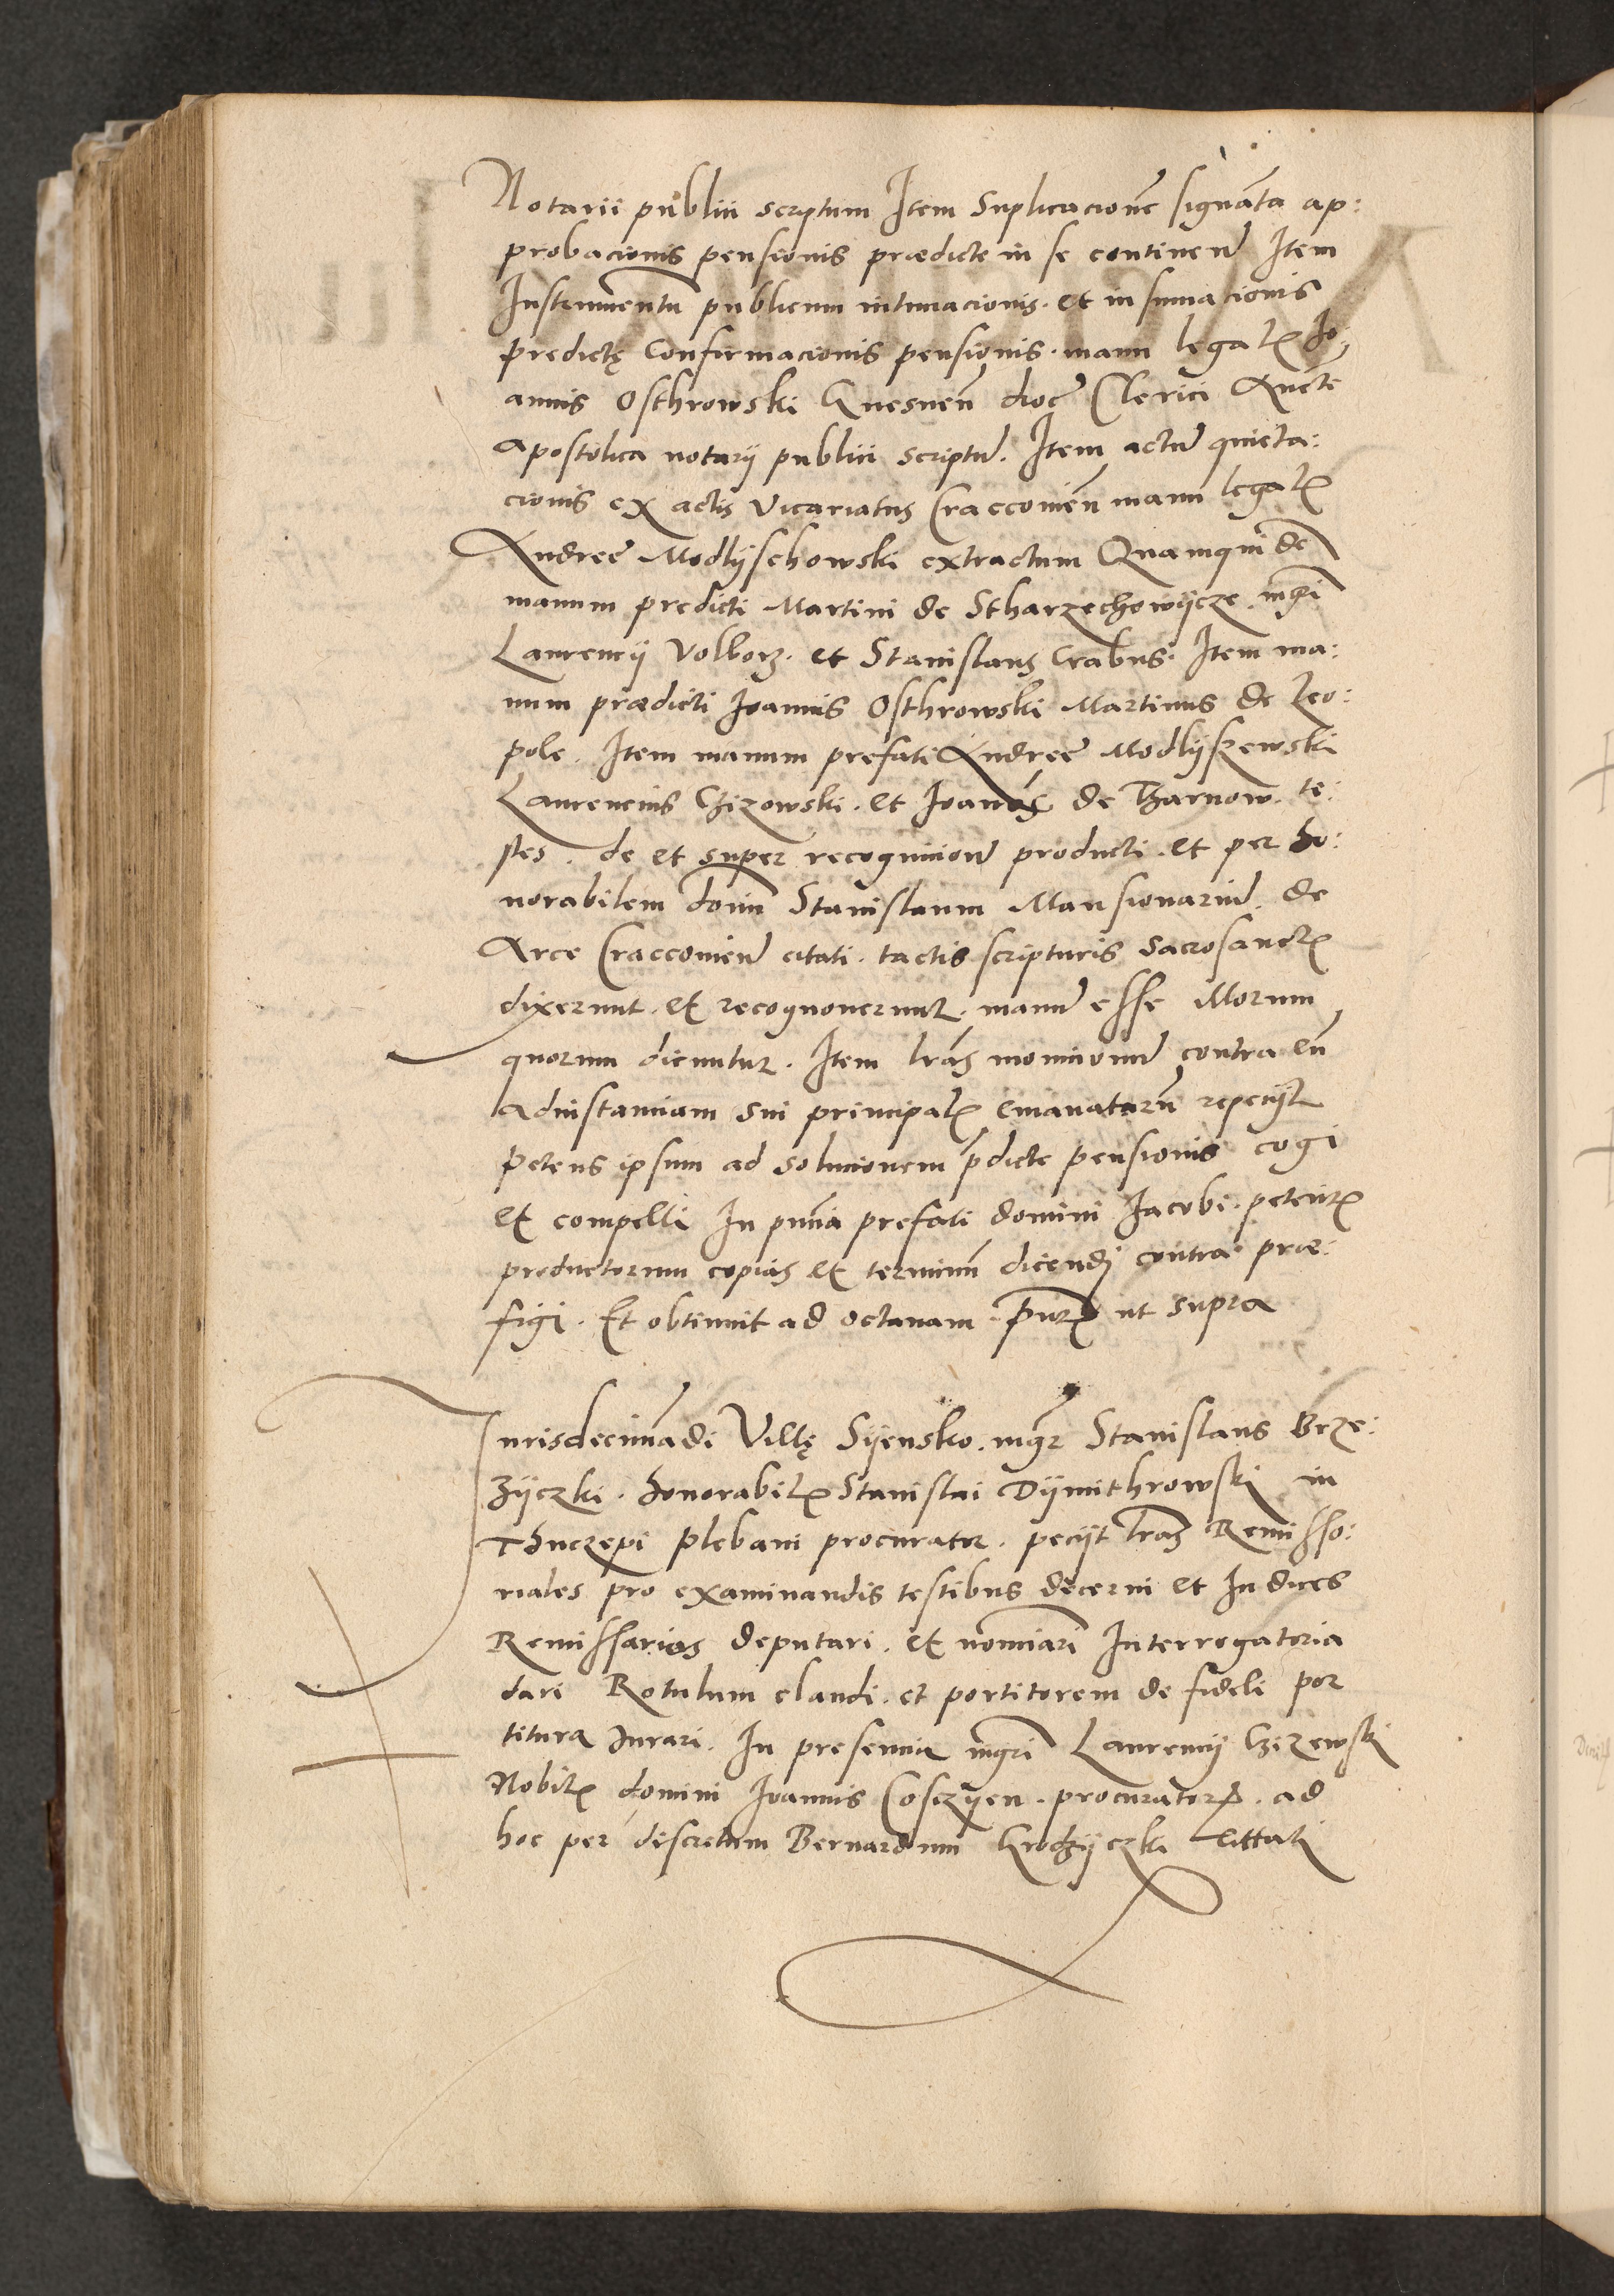 Notarii publici scriptum Item Suplicacione signata ap:
probacionis pensionis prædicte in se continen̄ Item
Instrumentu publicum intimacionis. et insinuacionis
predictę Confirmacionis pensionis. manu legal Jo
annis Osthrowski Gnesnen̄ dioc̄ Clerici Aucte
Apostolica notarij publici scriptū. Item actū quieta:
cionis ex actis Vicariatus Craccovien̄ manu legal
Andreæ Modlijschowski extractum Quamquide
manum predicti Martini de Stharzechowijcze. mgri
Laurencij Volborz. et Stanislaus Crabus. Item ma:
num prædicti Joannis Osthrowski Martinus de Leo:
pole. Item manum prefati Andreæ Modlijszewski
Laurencius Czizowski. et Joannes de Tharnow. te:
stes. de et super recognicione producti. et per ho:
norabilem dom̄ Stanislaum Mansionariū. de
Arce Craccovien̄ citati. tactis scripturis sacrosanct
dixerunt. et recognoverunt. manū esse Illorum
quorum dicuntur. Item lrãs monicionū contra eū
ad instanciam sui principal emanatarū repecijt
petens ipsum ad solucionem pdicte pensionis cogi
et compelli In pñcia prefati domini Jacobi. petent
productorum copias et terminū dicendi contra præ:
figi. Et obtinuit ad octavam. pñt ut supra
Juris decimãdi Villę Sijensko. mgr Stanislaus Brze:
zijczki. honorabil Stanislai Dijmithrowski in
Thuczepi plebani procurator. pecijt lrãs Remisso:
riales pro examinandis testibus decerni et Iudices
Remissarios deputari. et nominari Interrogatoria
dari Rotulum claudi. et portitorem de fideli por
titura Iurari. In presencia mgri Laurencij Czizewski
Nobil domini Joannis Cosczijen. procurator. ad
hoc per discretum Bernardum Grodzijczki Cittati